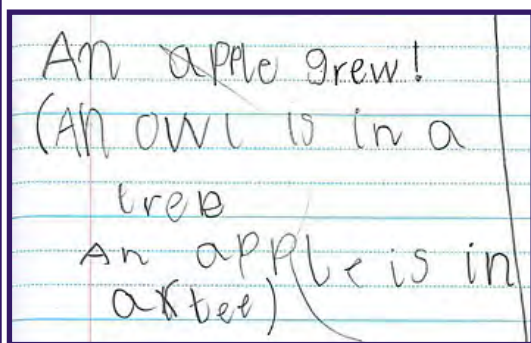 An apple grew!
(An owl is in a
tree
An apple is in
a tee)